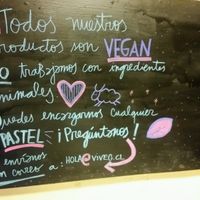 ¡Todos nuestros
productos son VEGAN
NO trabajamos con ingredientes
animales
Puedes encargarnos cualquier
PASTEL ¡Pregúntanos!
o envíanos
un correo a: HOLA@VIVEG.CL